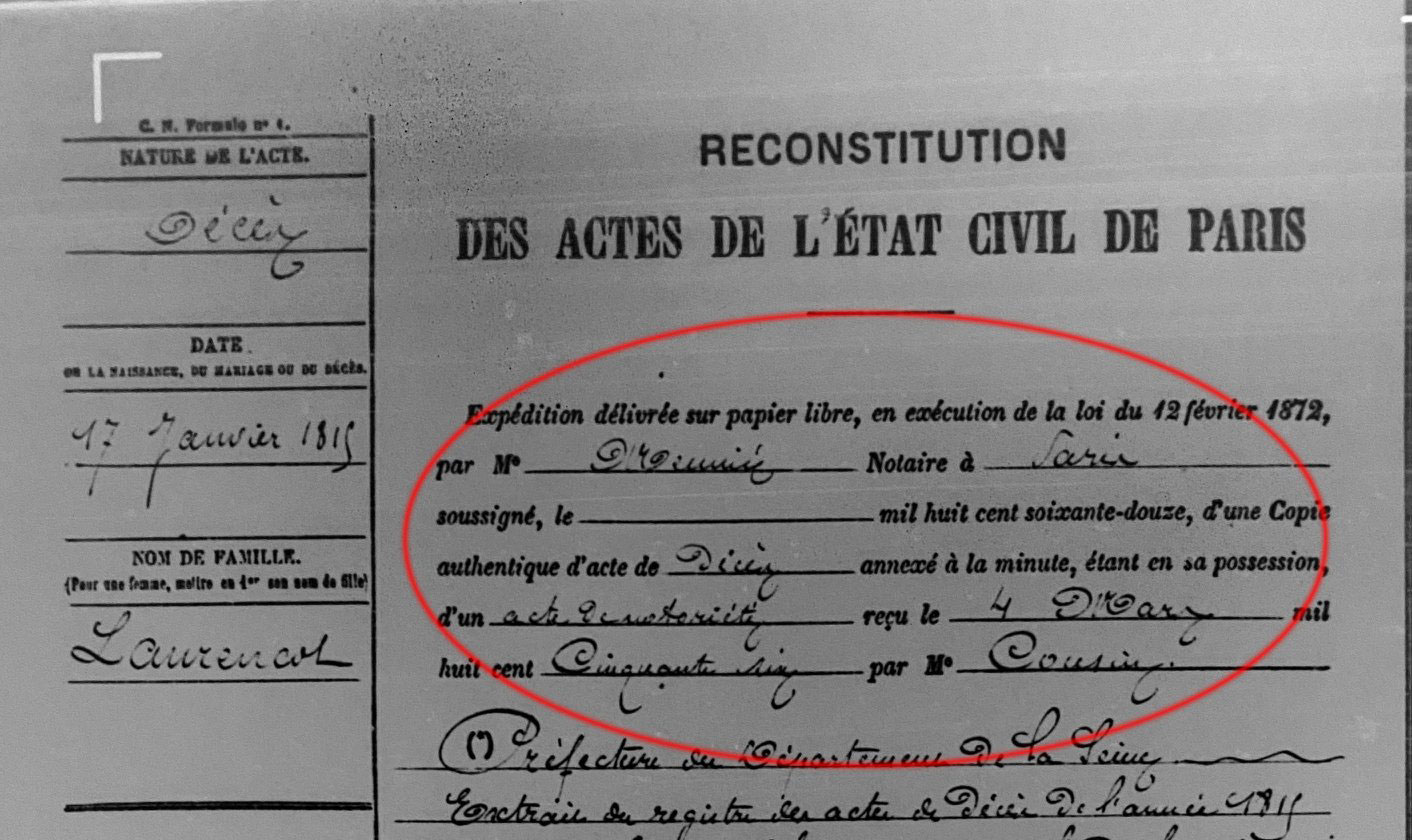 C. N. Formule nº 1.
NATURE DE L'ACTE.
Décès
DATE
DE LA NAISSANCE, DU MARIAGE OU DU DÉCÈS.
17 Janvier 1815
NOM DE FAMILLE.
(Pour une femme, mettre en 1er son nom de fille)
Laurencot
RECONSTITUTION
DES ACTES DE L'ÉTAT CIVIL DE PARIS
Expédition délivrée sur papier libre, en exécution de la loi du 12 février 1872,
par Me Notaire à Paris
soussigné, le mil huit cent soixante-douze, d'une Copie
authentique d'acte de Décès annexé à la minute, étant en sa possession,
d'un acte de notoriété reçu le 4 Mars mil
huit cent Cinquante six par Me Cousin
(*) Préfecture du Département de la Seine
Extrait du registre des actes de Décès de l'année 1815